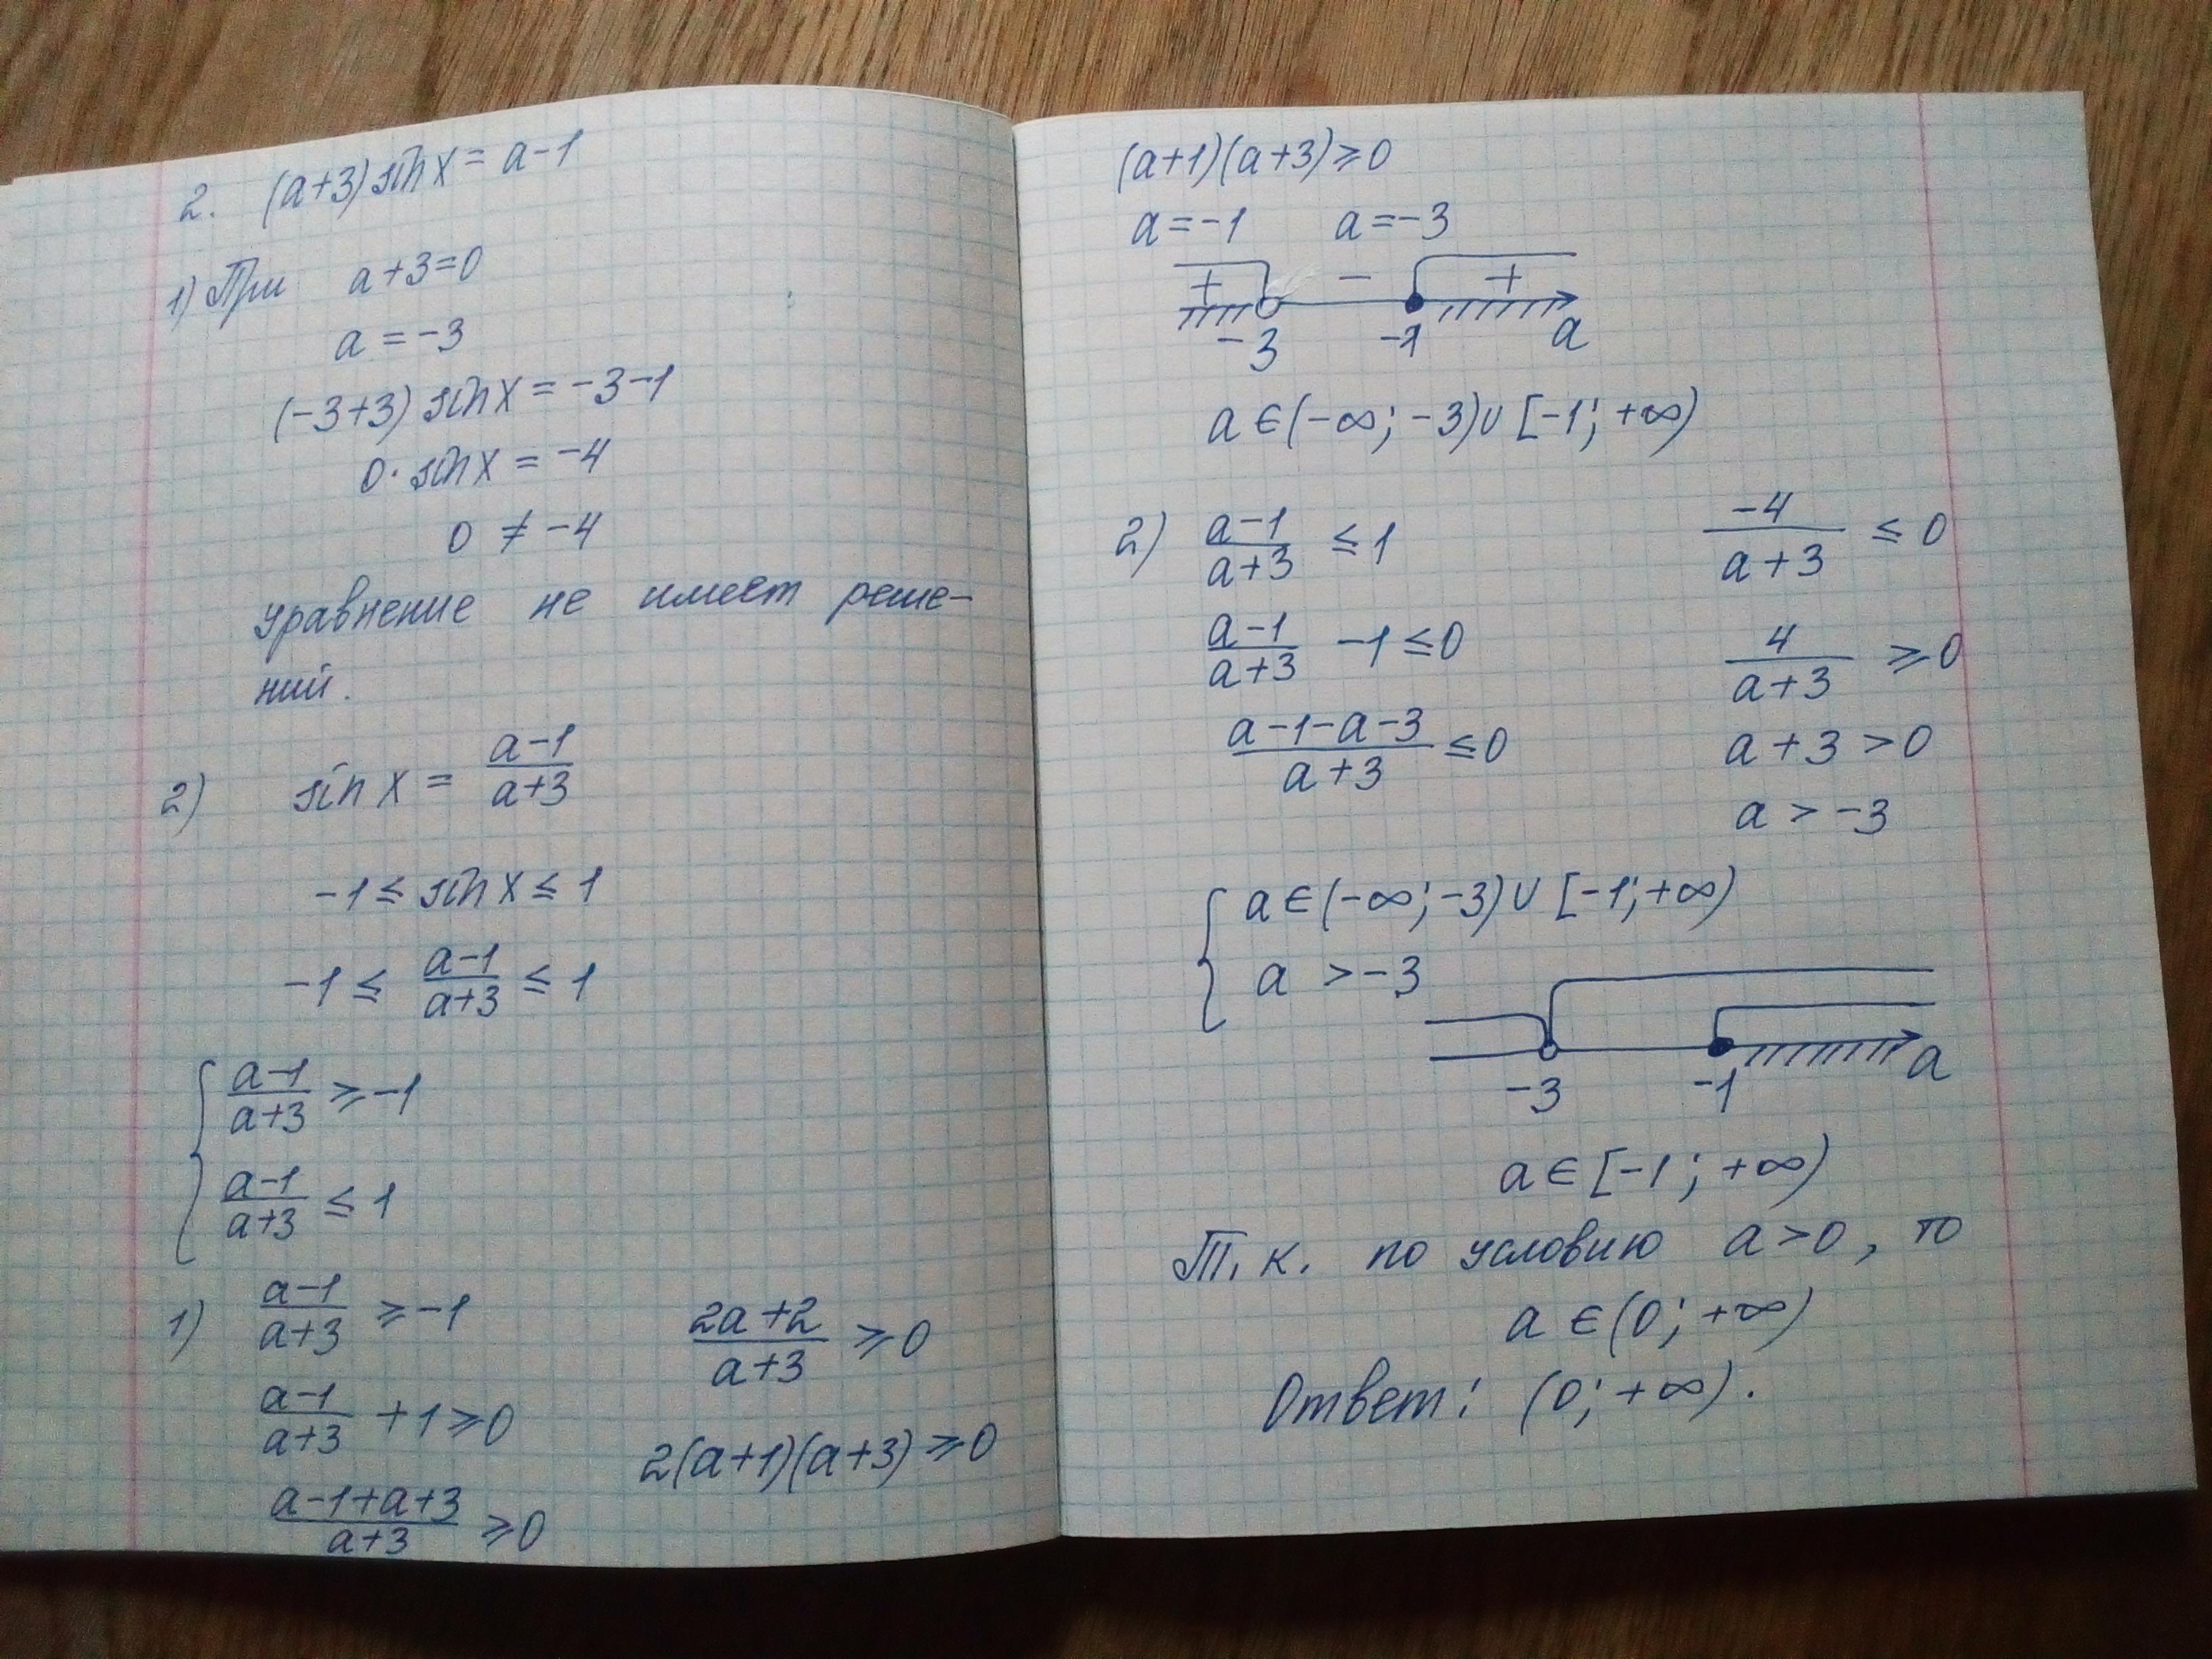 2. (a+3) sin x = a-1
1) При a+3=0
a = -3
(-3+3) sin x = -3-1
0· sin x = -4
0 ≠ -4
уравнение не имеет реше-
ний.
2) sin x = (a-1)/(a+3)
-1 ≤ sin x ≤ 1
-1 ≤ (a-1)/(a+3) ≤ 1
{ (a-1)/(a+3) ≥ -1
(a-1)/(a+3) ≤ 1
1) (a-1)/(a+3) ≥ -1
(a-1)/(a+3) +1 ≥ 0
(a-1+a+3)/(a+3) ≥ 0
(2a+2)/(a+3) ≥ 0
2(a+1)(a+3) ≥ 0
(a+1)(a+3) ≥ 0
a = -1 a = -3
+ - +
-3 -1 a
a ∈ (-∞; -3) ∪ [-1; +∞)
2) (a-1)/(a+3) ≤ 1
(a-1)/(a+3) -1 ≤ 0
(a-1-a-3)/(a+3) ≤ 0
-4/(a+3) ≤ 0
4/(a+3) ≥ 0
a+3 > 0
a > -3
{ a ∈ (-∞; -3) ∪ [-1; +∞)
a > -3
-3 -1 a
a ∈ [-1; +∞)
Т. к. по условию a > 0, то
a ∈ (0; +∞)
Ответ: (0; +∞).